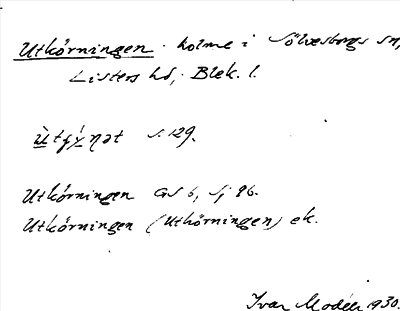 Utkörningen. holme i Sölvesborgs sn,
Listers hd, Blek. l.
s. 129.
Utkörningen GS 6, Sj 96.
Utkörningen (Utkörningen) ek.
Ivar Modéer 1930.